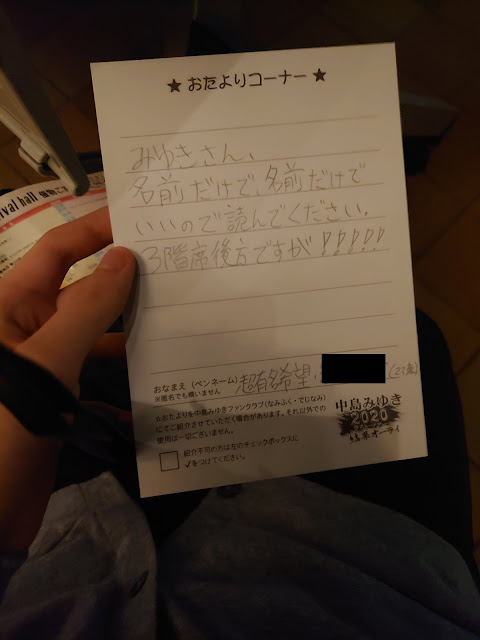 ★ おたよりコーナー ★
みゆきさん、
名前だけで、名前だけで
いいので読んでください。
3階席後方ですが!!!!!
おなまえ(ペンネーム) 超有名希望、 (23歳)
※匿名でも構いません
※おたよりを中島みゆきファンクラブ(なみふく・でじなみ)
にてご紹介させていただく場合があります。それ以外での
使用は一切ございません。
紹介不可の方は左のチェックボックスに
✓をつけてください。
中島みゆき
2020
結果オーライ
ival hall